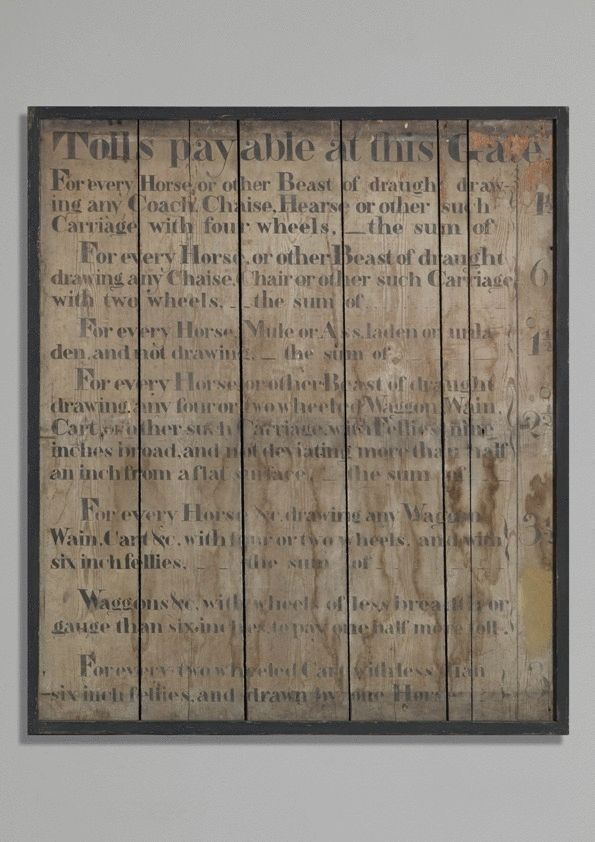 Tolls payable at this Gate
For every Horse, or other Beast of draught draw-
ing any Coach, Chaise, Hearse or other such
Carriage with four wheels, — the sum of
For every Horse, or other Beast of draught 6
drawing any Chaise, Chair or other such Carriage
with two wheels, — the sum of
For every Horse, Mule or Ass, laden or unla
den, and not drawing, — the sum of 1½
For every Horse, or other Beast of draught
drawing, any four or two wheeled Waggon, Wain,
Cart, or other such Carriage, with Fellies nine 2½
inches broad, and not deviating more than half
an inch from a flat surface, — the sum of
For every Horse &c, drawing any Waggon
Wain, Cart &c, with four or two wheels, and with
six inch fellies, — the sum of
Waggons &c, with wheels of less breadth or
gauge than six inches, to pay one half more toll.
For every two wheeled Cart with less than
six inch fellies, and drawn by one Horse